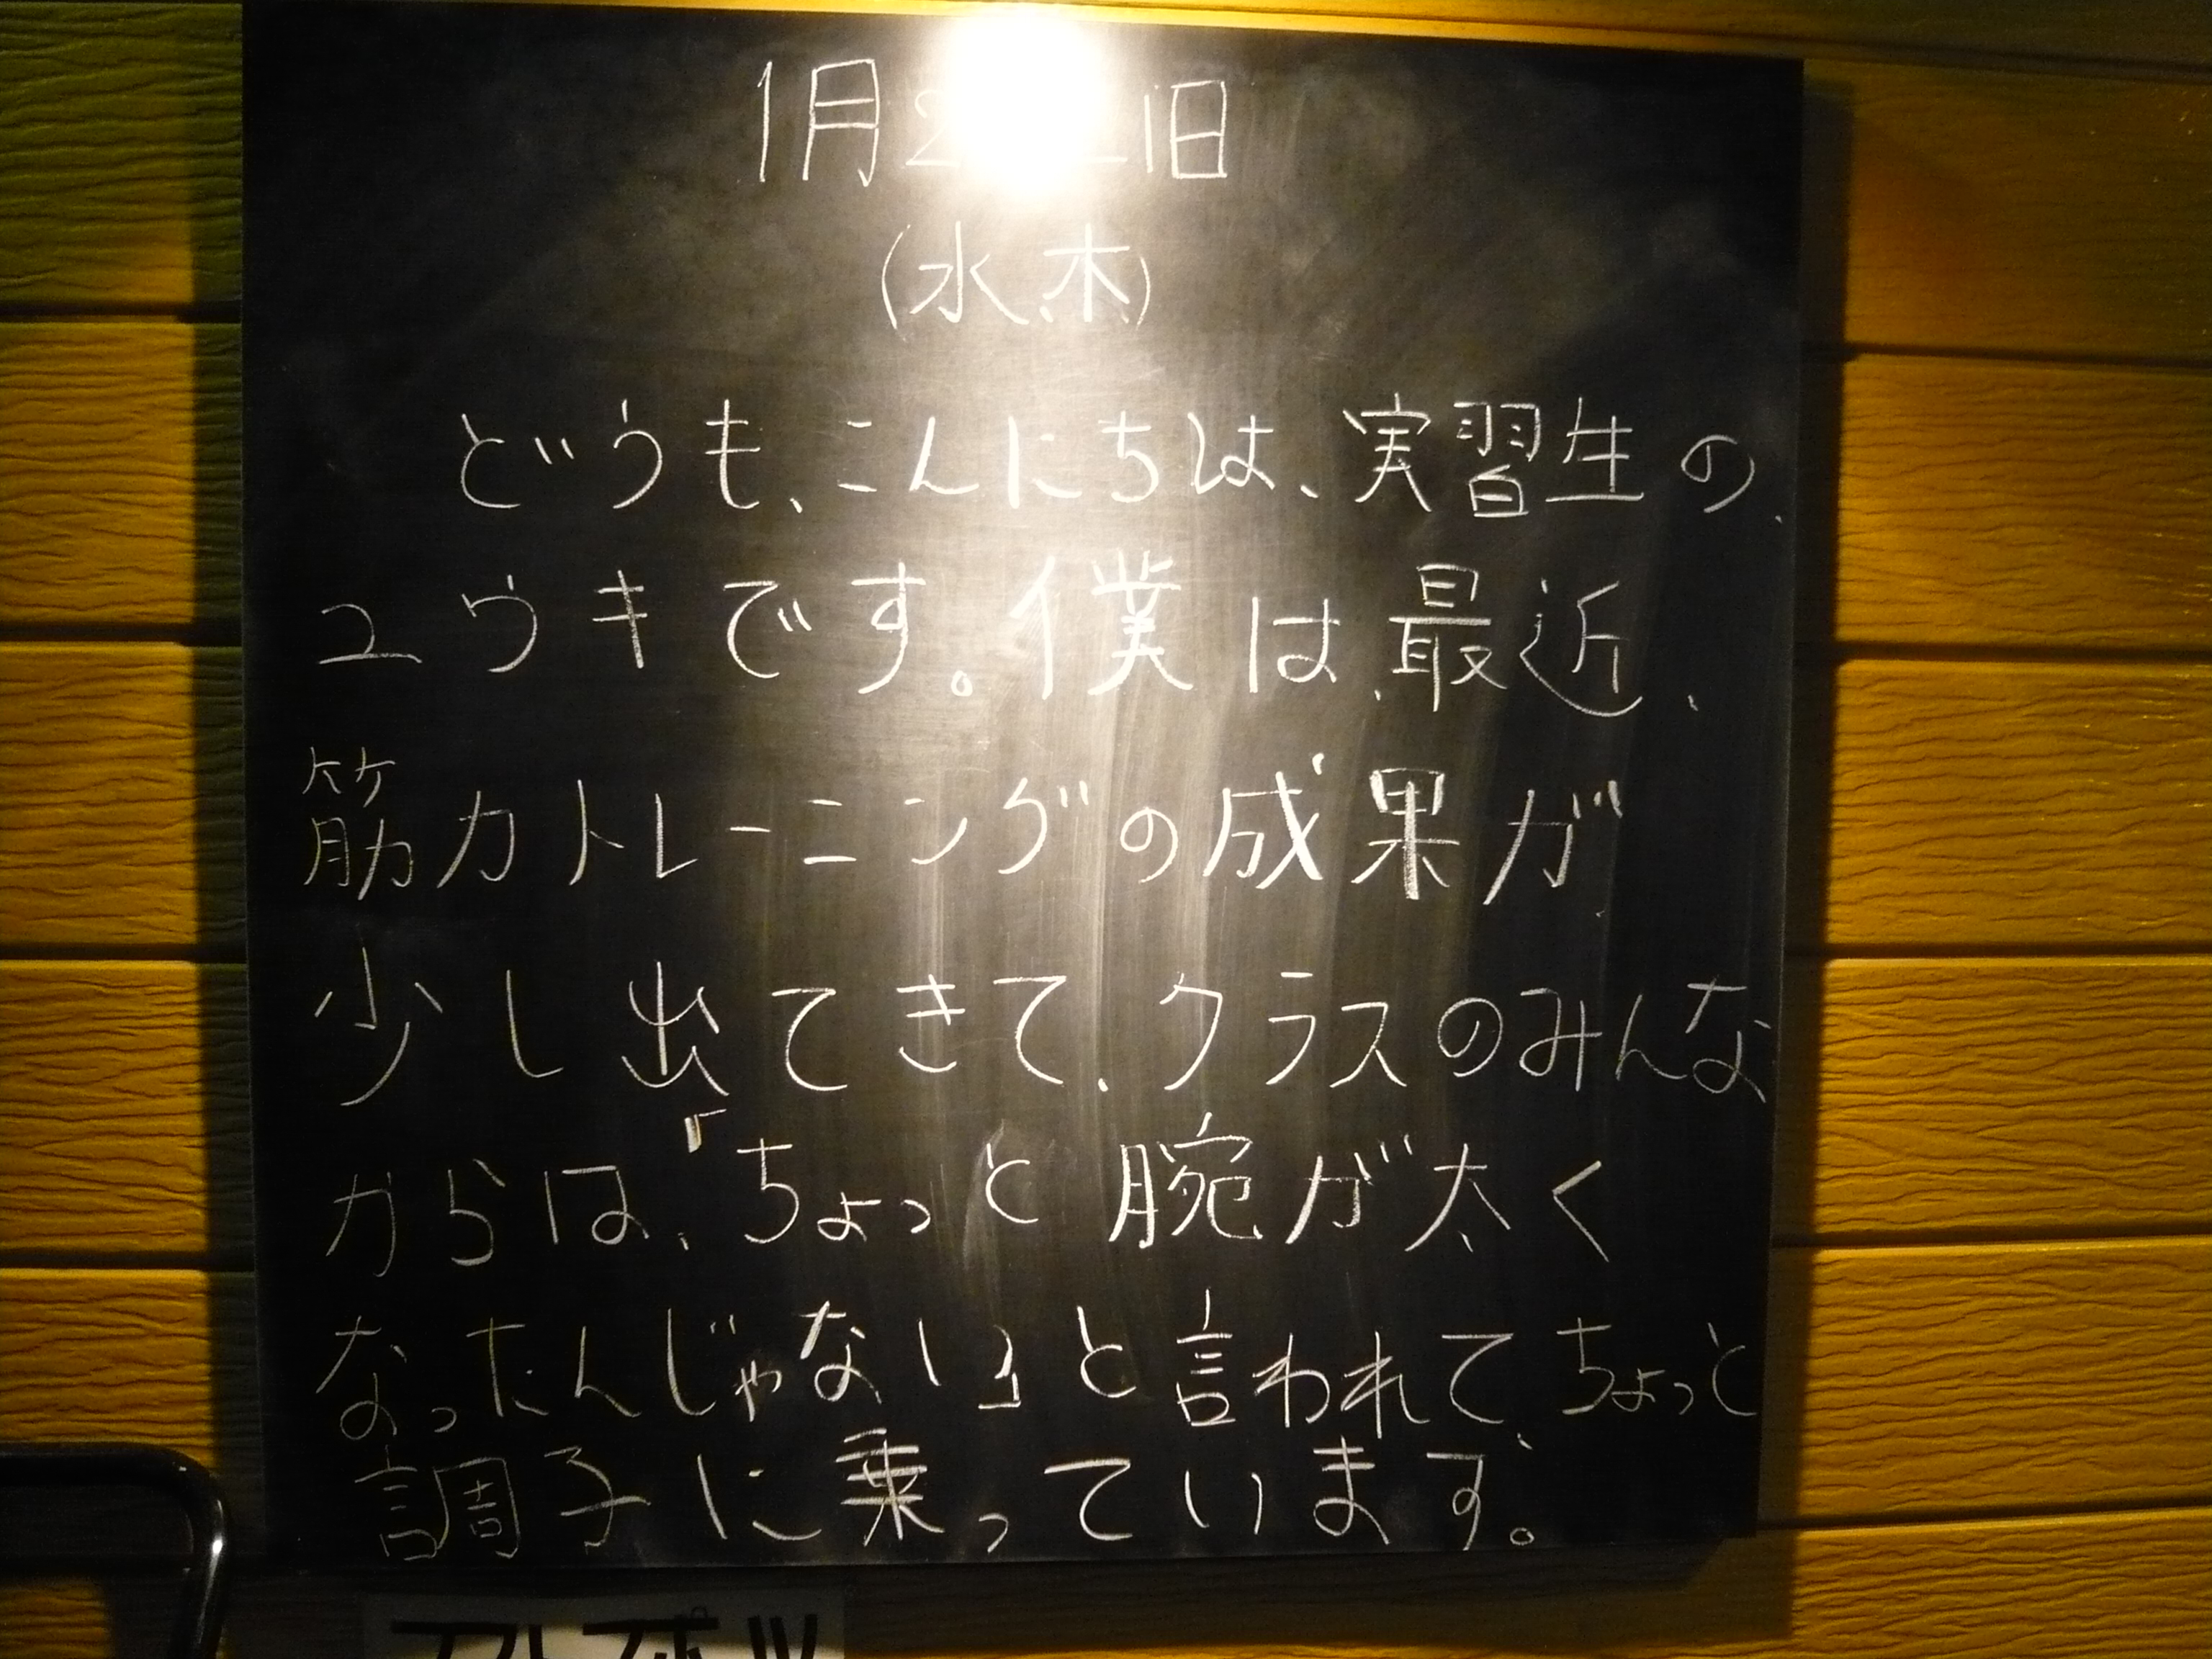 1月2 21日
(水、木)
どうも、こんにちは、実習生の、
ユウキです。僕は、最近、
筋力トレーニングの成果が
少し出てきて、クラスのみんな
からは、「ちょっと腕が太く
なったんじゃない」と言われて、ちょっと
調子に乗っています。